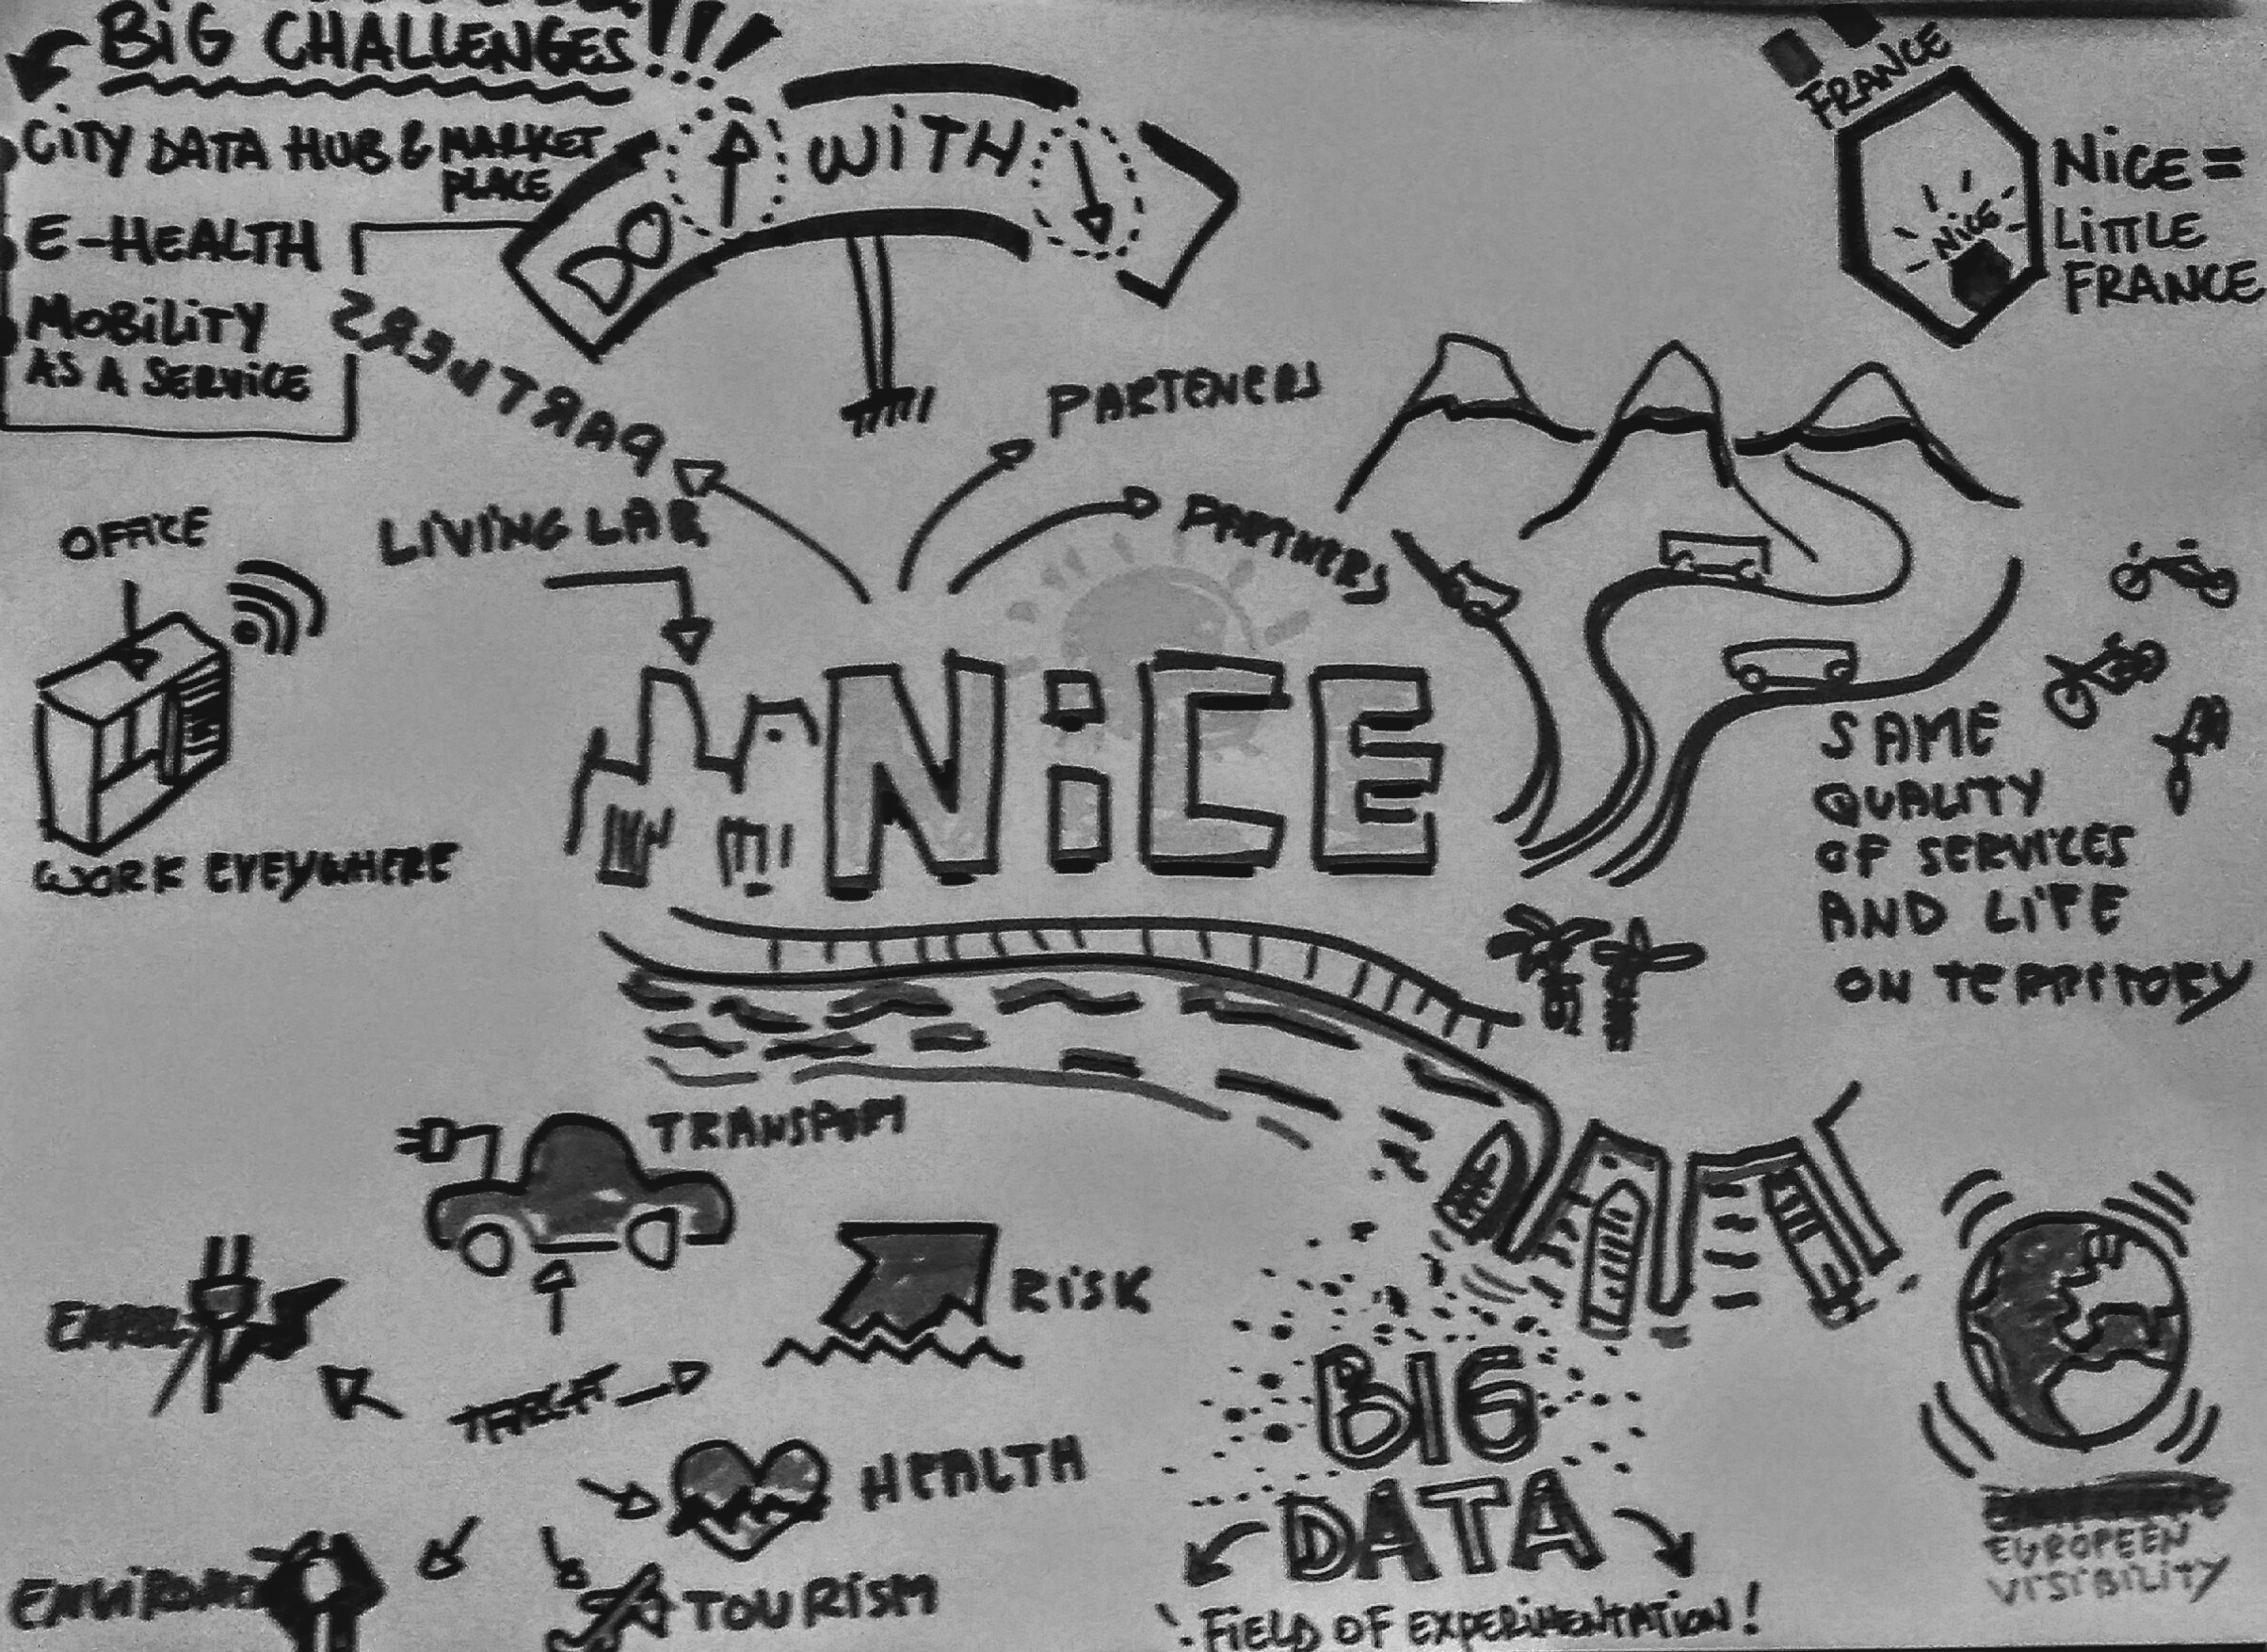 BiG CHALLENGES!!!
CiTY DATA HUB & MARKET
PLACE
E-HEALTH
MOBiLiTY
AS A SERViCE
DO WiTH
FRANCE
NiCE
NiCE =
LiTTLE
FRANCE
PARTNERS
PARTENERS
PARTNERS
OFFiCE
LIVING LAB
WORK EVEYWHERE
NiCE
SAME
QUALITY
OF SERVICES
AND LIFE
ON TERRITORY
TRANSPORT
RiSK
TARGET
HEALTH
TOURiSM
BIG
DATA
FiELD OF EXPERiMENTATiON!
EUROPEEN
ViSiBiLiTY